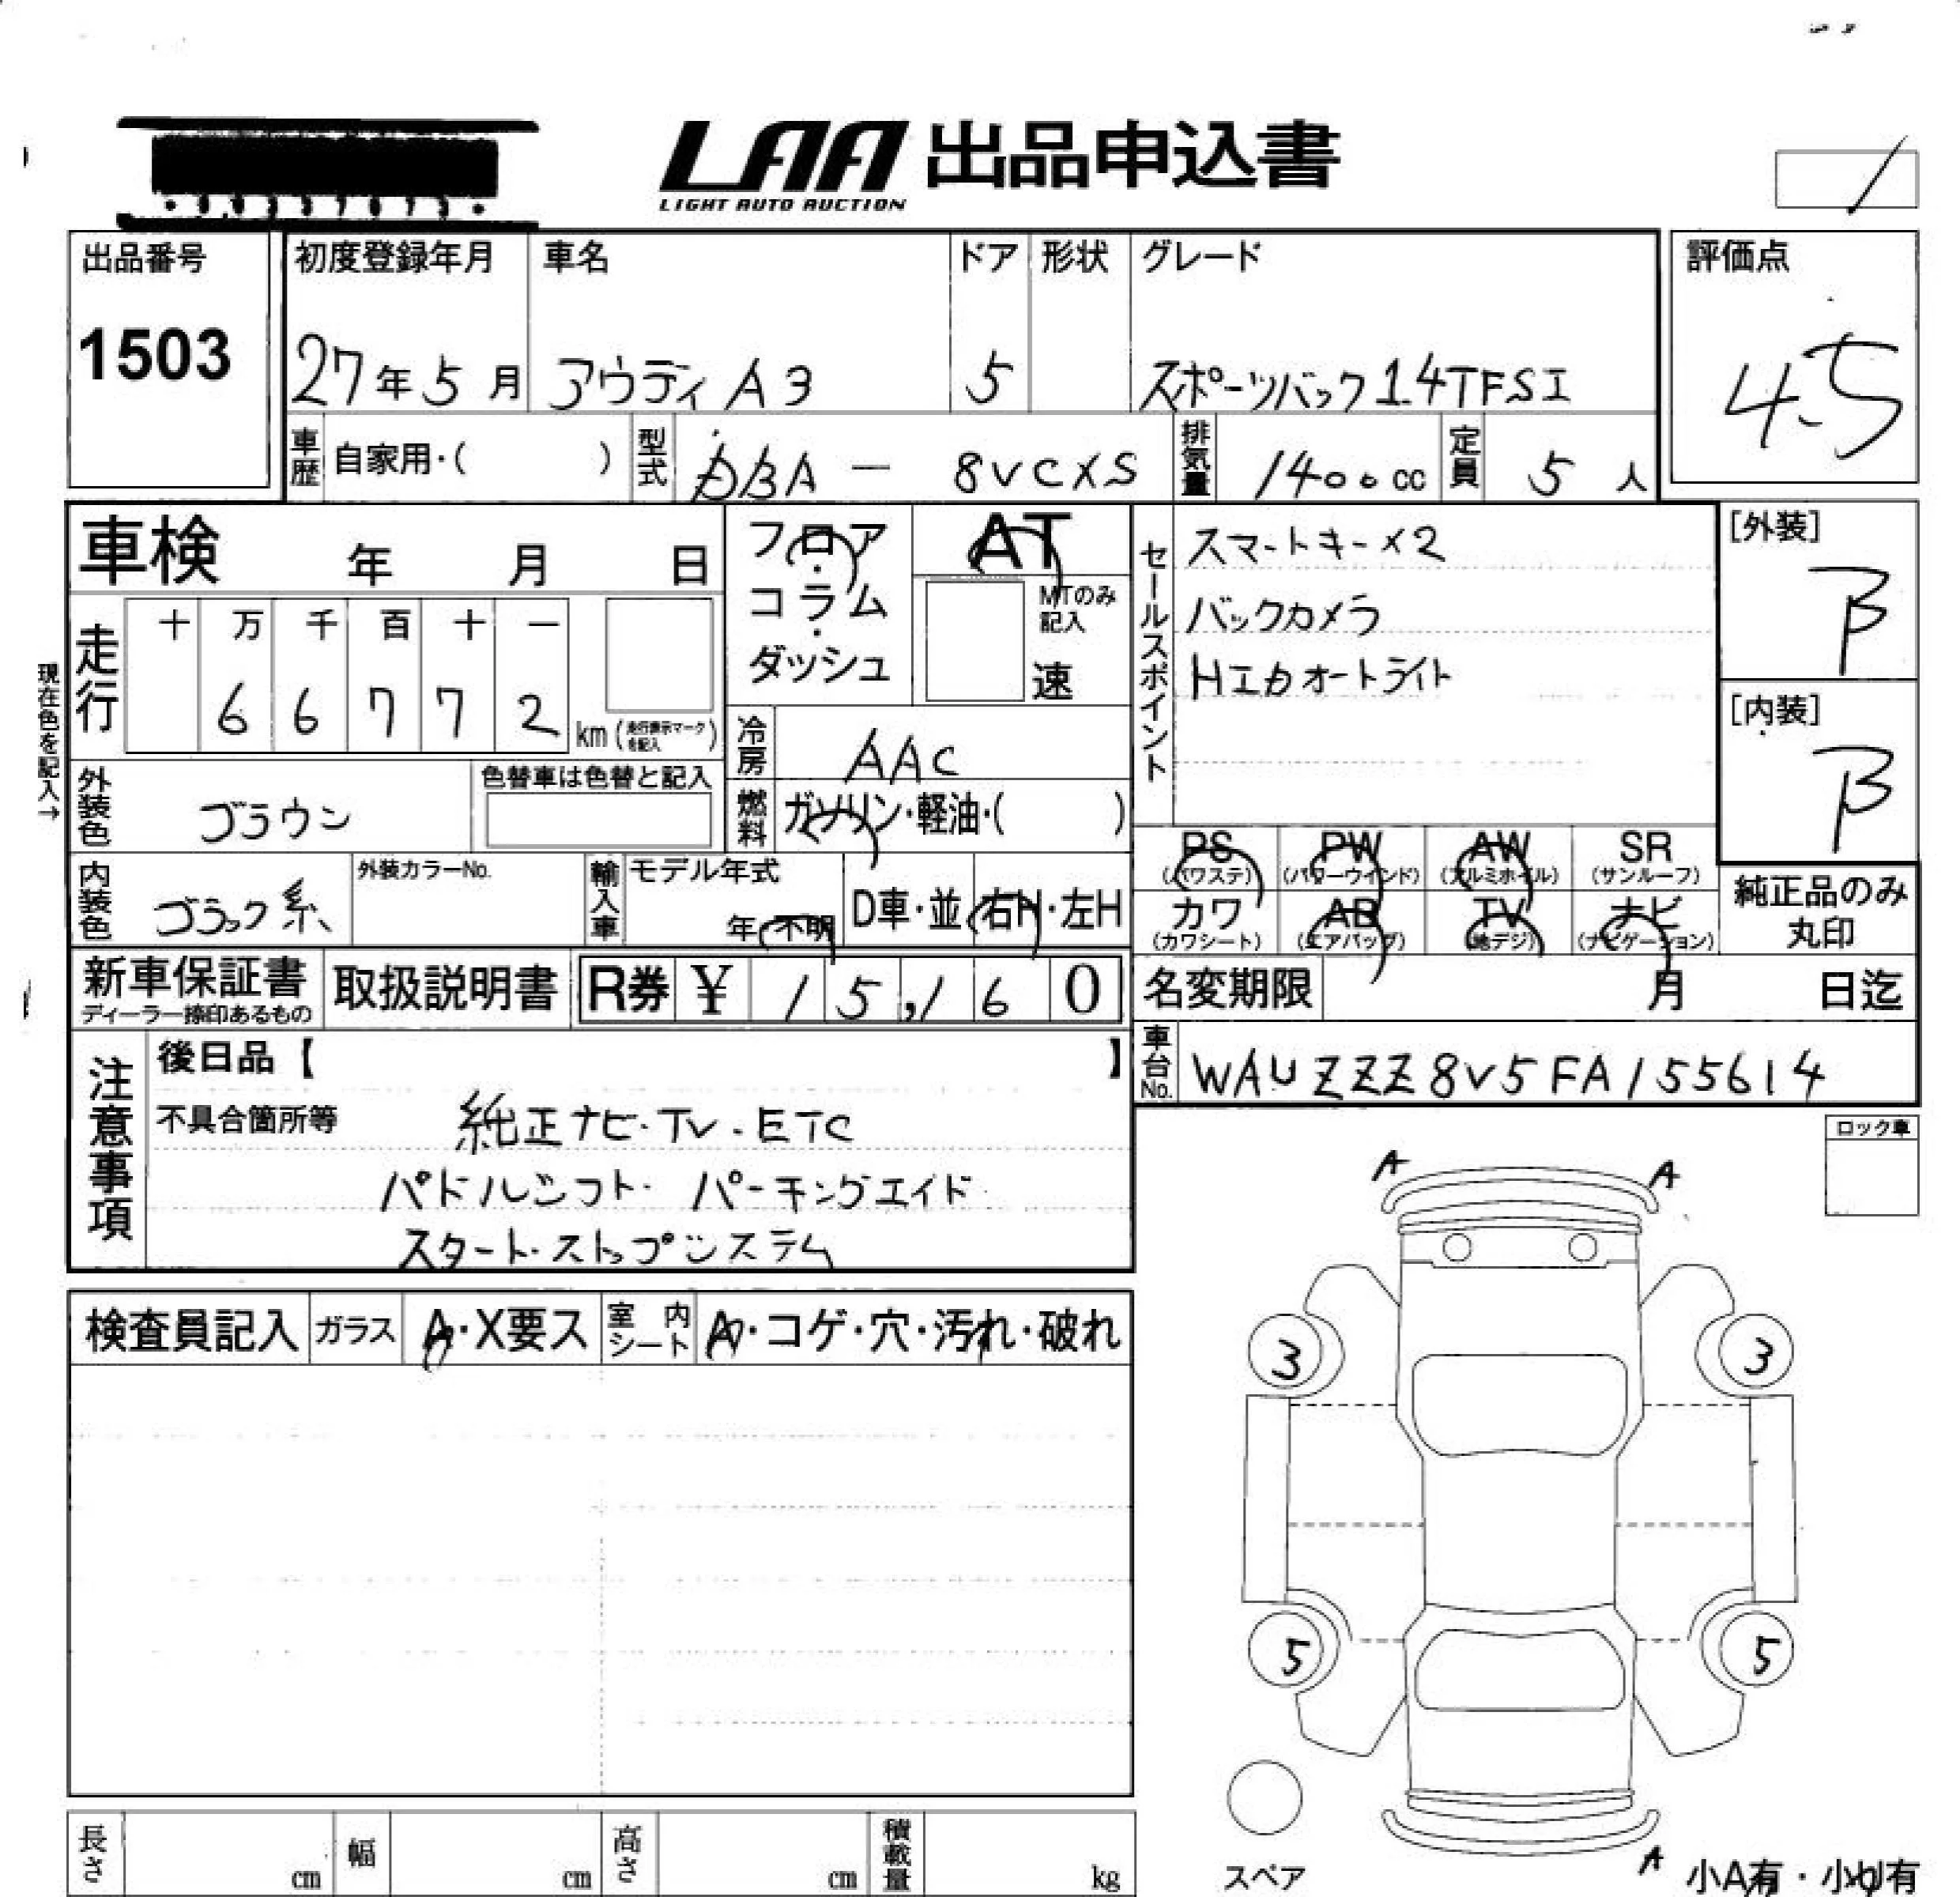 LAA 出品申込書
LIGHT AUTO AUCTION
出品番号 初度登録年月 車名 ドア 形状 グレード 評価点
1503 27年5月 アウディ A3 5 スポーツバック 1.4TFSI 4.5
車歴 自家用・( ) 型式 DBA － 8VCXS 排気量 1400cc 定員 5人
車検 年 月 日
フロア・コラム・ダッシュ
AT
MTのみ記入
速
セールスポイント
スマートキー×2
バックカメラ
HIDオートライト
[外装]
B
[内装]
B
現在色を記入→
走行 十 万 千 百 十 一
6 6 7 7 2 km (走行表示マークを記入)
冷房 AAC
燃料 ガソリン・軽油・( )
外装色 ブラウン 色替車は色替と記入
内装色 ブラック系 外装カラーNo. 輸入車 モデル年式 年・不明 D車・並 右H・左H
PS (パワステ) PW (パワーウインド) AW (アルミホイル) SR (サンルーフ)
カワ (カワシート) AB (エアバッグ) TV (地デジ) ナビ (ナビゲーション)
純正品のみ丸印
新車保証書 ディーラー捺印あるもの 取扱説明書 R券 ¥ 15,160
名変期限 月 日迄
車台No. WAUZZZ8V5FA155614
注意事項
後日品【 】
不具合箇所等 純正ナビ・TV・ETC
パドルシフト・パーキングエイド
スタート・ストップシステム
ロック車
A A
検査員記入 ガラス A・X要ス 室内シート A・コゲ・穴・汚れ・破れ
3 3
5 5
スペア
A
小A有・小U有
長さ cm 幅 cm 高さ cm 積載量 kg